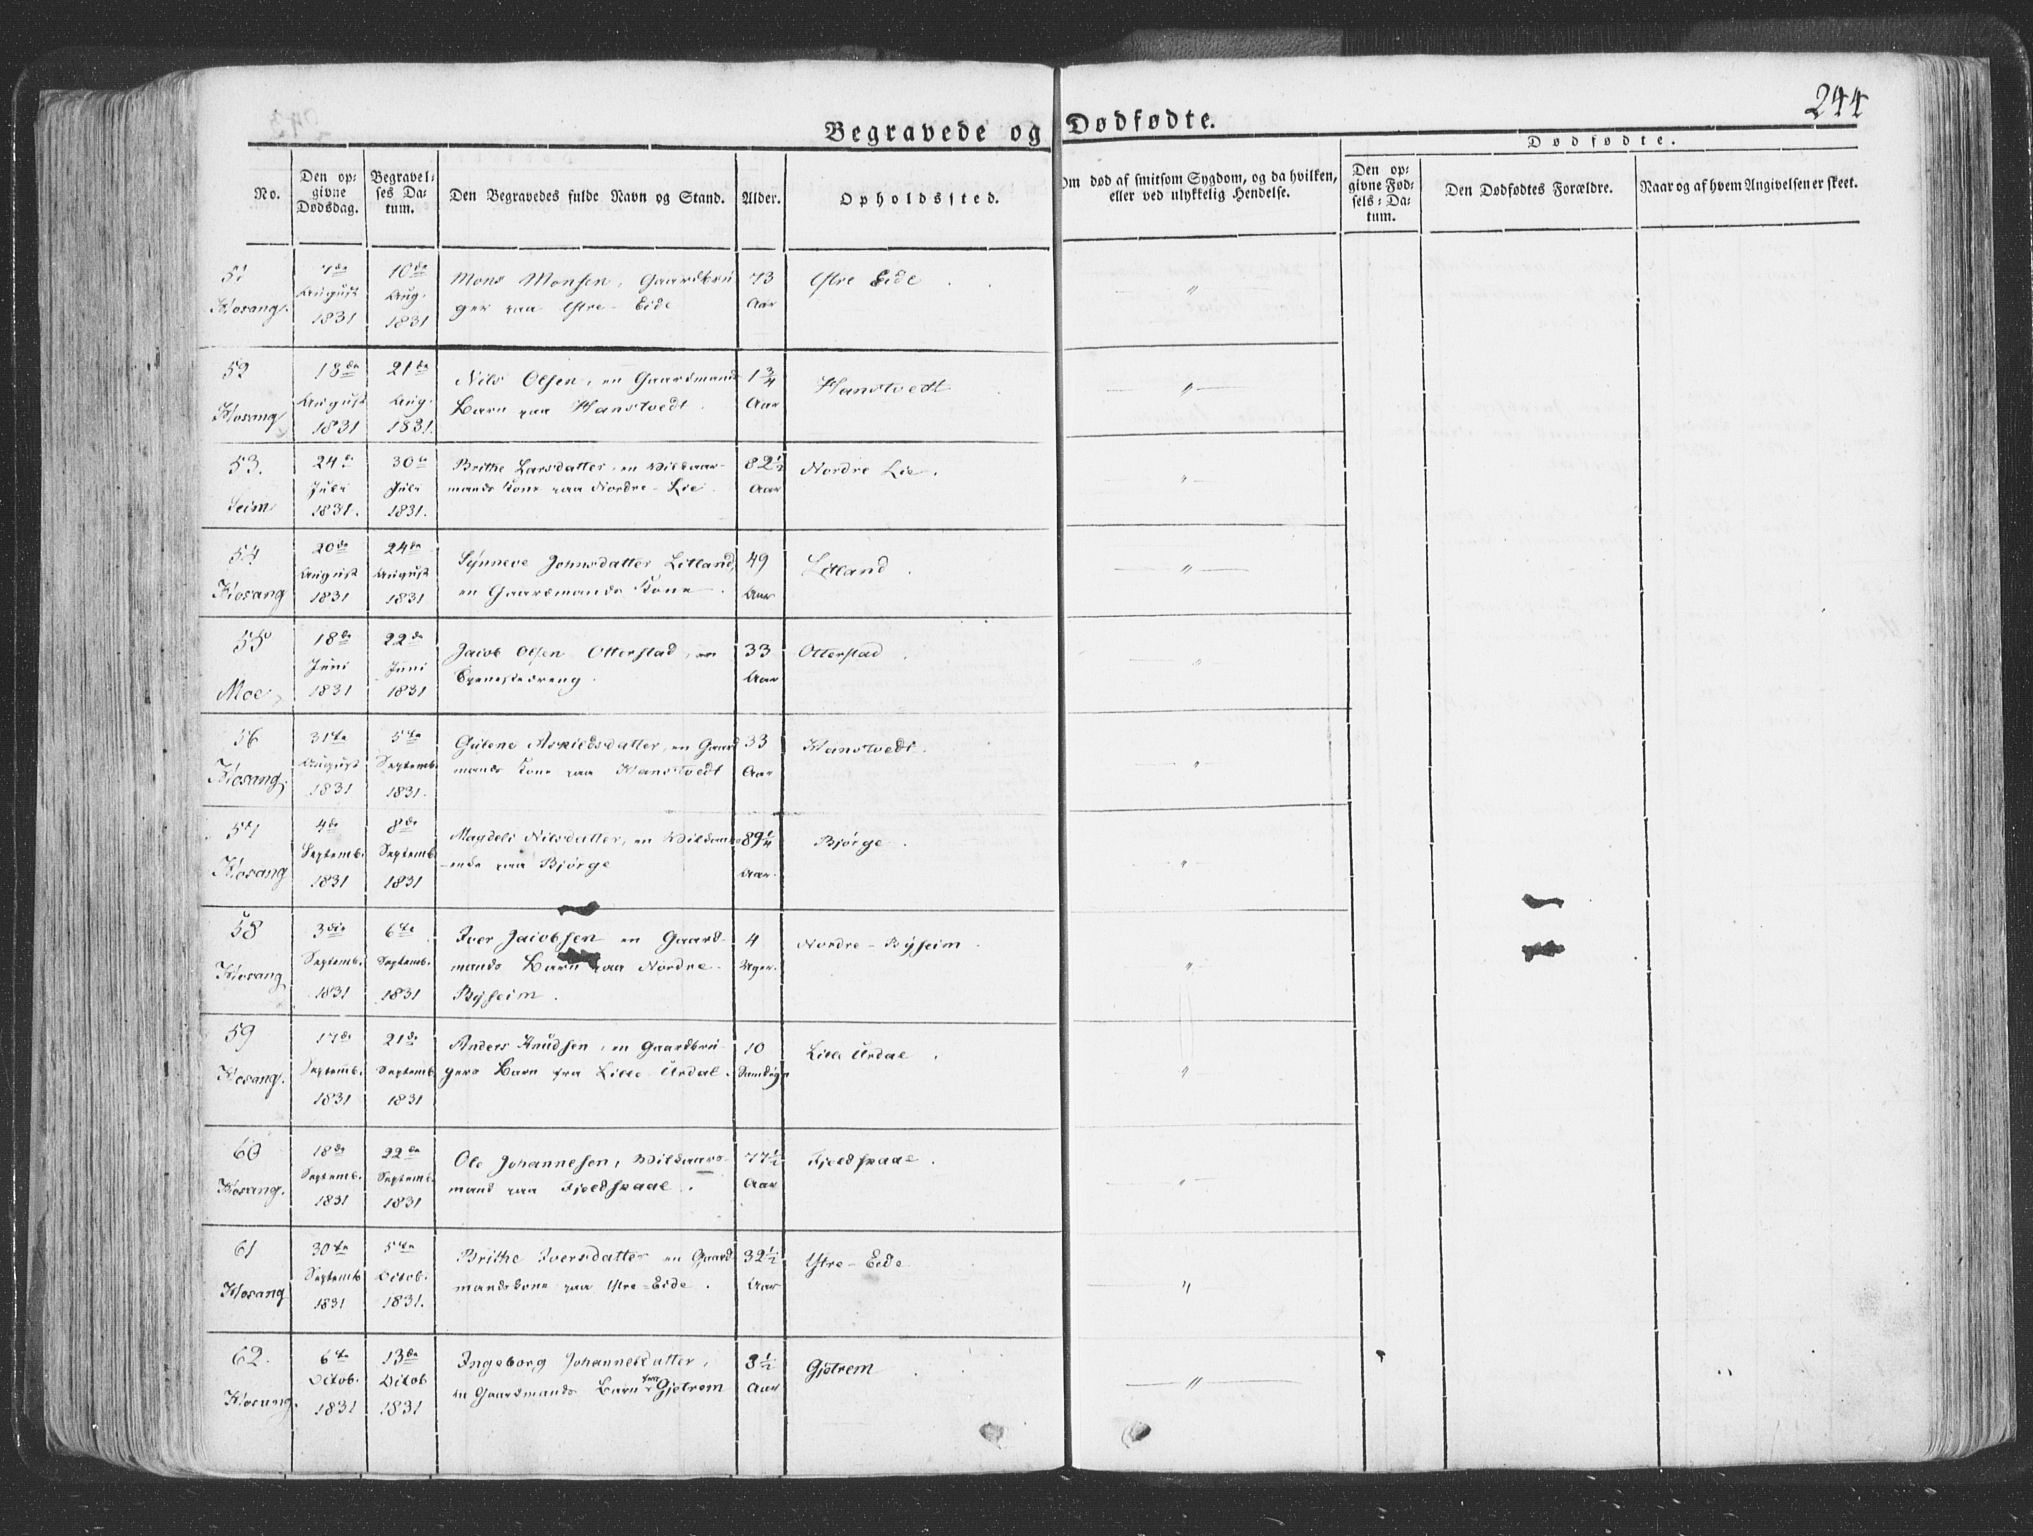 244
Begravede og Dødfødte.
Dødfødte.
No.
Den op-
givne
Dødsdag.
Begravel-
ses Da-
tum.
Den Begravedes fulde Navn og Stand.
Alder.
Opholdssted.
Om død af smitsom Sygdom, og da hvilken,
eller ved ulykkelig Hendelse.
Den op-
givne Fød-
sels-Da-
tum.
Den Dødfødtes Forældre.
Naar og af hvem Angivelsen er skeet.
51 7de 10de Mons Monsen, Gaardbrü 73 Ystre Eide
August Aug. ger paa Ystre-Eide Aar "
Hosang. 1831 1831
52 18de 21de Nils Olsen, en Gaardmands 1 3/4 Hanstvedt
August Aug. Barn paa Hanstvedt. Aar "
Hosang 1831 1831.
53. 24de 30te Brithe Larsdatter, en Vilkaar- 82 1/2 Nordre Lie.
Juli Juli mands Kone paa Nordre-Lie. Aar "
Seim 1831. 1831.
54 20de 24de Synneve Johnsdatter Litland, 49 Litland.
August August en Gaardmands Kone. Aar "
Hosang 1831 1831
55 18de 22de Jacob Olsen Otterstad, en 33 Otterstad.
Juni Juni Tjenestedreng. Aar "
Moe, 1831 1831
56 31te 5te Askildsdatter, en Gaard 33 Hanstvedt.
August Septemb. mands Kone paa Hanstvedt Aar "
Hosang. 1831 1831.
57 4de 8de Magdeli Nilsdatter, en 89 1/4 Bjørge.
Septemb. Septemb. paa Bjørge Aar. "
Hosang 1831 1831
58 3die 6te Iver Jacobsen en Gaard- 4 Nordre-Byseim.
Septemb. Septemb. mands Barn paa Nordre- Uger. "
Hosang 1831 1831 Byseim.
59 17de 21de Anders Knüdsen, en Gaardbrü- 10 Lille Urdal.
Septemb. Septemb. gers Barn fra Lille-Urdal. "
Hosang. 1831 1831
60 18de 22de Ole Johannesen, Vilkaars- 77 1/2 Fjeldskaal.
Septemb. Septemb. mand paa Fjeldskaal. Aar "
Hosang. 1831 1831
61 30te 5te Brithe Iversdatter en Gaard 32 1/2 Ystre-Eide
Septemb Octob. mandskone paa Ystre-Eide. Aar "
Hosang 1831 1831.
62. 6te 13de Ingeborg Johannesdatter, 3 1/2 Gjetrem
Octob. Octob en Gaardmands Barn fra Gjetrem Aar "
Hosang. 1831 1831